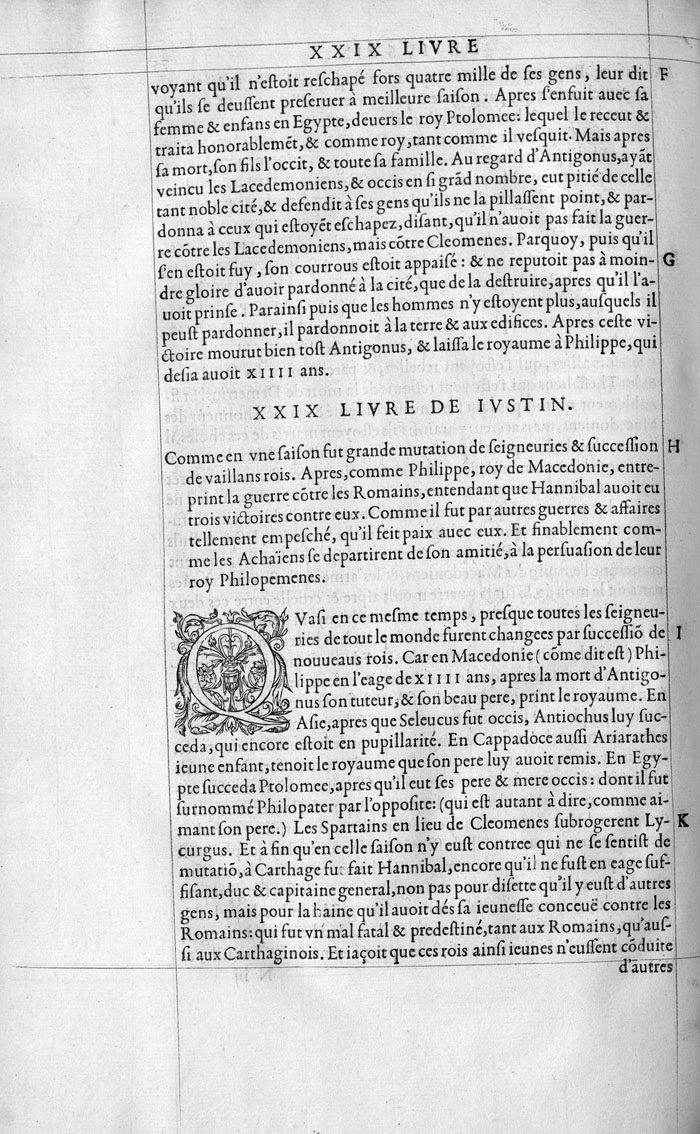 XXIX LIVRE
voyant qu'il n'eſtoit reſchapé fors quatre mille de ſes gens, leur dit F
qu'ils ſe deuſſent preſeruer à meilleure ſaiſon. Apres ſ'enfuit auec ſa
femme & enfans en Egypte, deuers le roy Ptolomee: lequel le receut &
traita honorablemēt, & comme roy, tant comme il veſquit. Mais apres
ſa mort, ſon fils l'occit, & toute ſa famille. Au regard d'Antigonus, ayāt
veincu les Lacedemoniens, & occis en ſi grād nombre, eut pitié de celle
tant noble cité, & defendit à ſes gens qu'ils ne la pillaſſent point, & par-
donna à ceux qui eſtoyēt eſchapez, diſant, qu'il n'auoit pas fait la guer-
re cōtre les Lacedemoniens, mais cōtre Cleomenes. Parquoy, puis qu'il
ſ'en eſtoit fuy, ſon courrous eſtoit appaiſé: & ne reputoit pas à moin- G
dre gloire d'auoir pardonné à la cité, que de la deſtruire, apres qu'il l'a-
uoit prinſe. Parainſi puis que les hommes n'y eſtoyent plus, auſquels il
peuſt pardonner, il pardonnoit à la terre & aux edifices. Apres ceſte vi-
ctoire mourut bien toſt Antigonus, & laiſſa le royaume à Philippe, qui
deſia auoit XIIII ans.
XXIX LIVRE DE IVSTIN.
Comme en vne ſaiſon fut grande mutation de ſeigneuries & ſucceſſion H
de vaillans rois. Apres, comme Philippe, roy de Macedonie, entre-
print la guerre cōtre les Romains, entendant que Hannibal auoit eu
trois victoires contre eux. Comme il fut par autres guerres & affaires
tellement empeſché, qu'il feit paix auec eux. Et finablement com-
me les Achaïens ſe departirent de ſon amitié, à la perſuaſion de leur
roy Philopemenes.
QVaſi en ce meſme temps, preſque toutes les ſeigneu-
ries de tout le monde furent changees par ſucceſſiō de I
nouueaus rois. Car en Macedonie (cōme dit eſt) Phi-
lippe en l'eage de XIIII ans, apres la mort d'Antigo-
nus ſon tuteur, & ſon beau pere, print le royaume. En
Aſie, apres que Seleucus fut occis, Antiochus luy ſuc-
ceda, qui encore eſtoit en pupillarité. En Cappadoce auſſi Ariarathes
ieune enfant, tenoit le royaume que ſon pere luy auoit remis. En Egy-
pte ſucceda Ptolomee, apres qu'il eut ſes pere & mere occis: dont il fut
ſurnommé Philopater par l'oppoſite: (qui eſt autant à dire, comme ai-
mant ſon pere.) Les Spartains en lieu de Cleomenes ſubrogerent Ly- K
curgus. Et à fin qu'en celle ſaiſon n'y euſt contree qui ne ſe ſentiſt de
mutatiō, à Carthage fut fait Hannibal, encore qu'il ne fuſt en eage ſuf-
fiſant, duc & capitaine general, non pas pour diſette qu'il y euſt d'autres
gens, mais pour la haine qu'il auoit dés ſa ieuneſſe conceuë contre les
Romains: qui fut vn mal fatal & predeſtiné, tant aux Romains, qu'auſ-
ſi aux Carthaginois. Et iaçoit que ces rois ainſi ieunes n'euſſent cōduite
d'autres